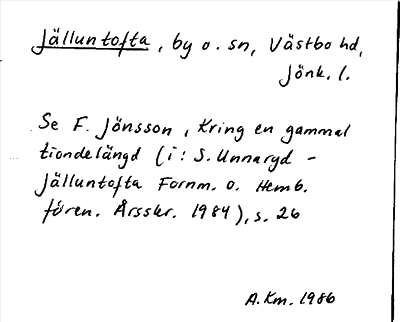 Jälluntofta, by o. sn, Västbo hd,
Jönk. l.
Se F. Jönsson, Kring en gammal
tiondelängd (i: S. Unnaryd -
Jälluntofta Fornm. o. Hemb.
fören. Årsskr. 1984), s. 26
A.Km. 1986